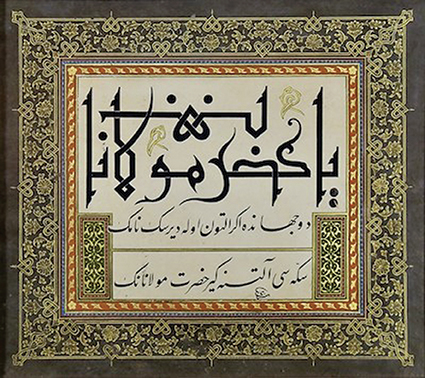 يا حضرت مولانا
دوجهانده اكر التون اوله ديرسك نامك
سكه سى آلتنه كير حضرت مولانانك